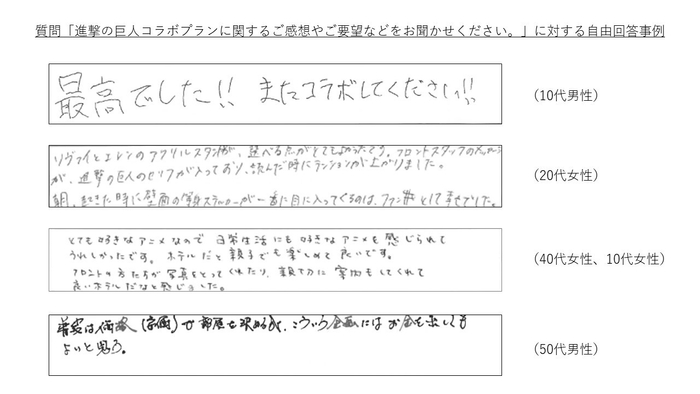 質問「進撃の巨人コラボプランに関するご感想やご要望などをお聞かせください。」に対する自由回答事例
最高でした!! またコラボしてください!!
(10代男性)
リヴァイとエレンのアクリルスタンドが、選べる点がとてもよかったです。フロントスタッフの
が、進撃の巨人のセリフが入っており、読んだ時にテンションが上がりました。
朝、起きた時に壁面の ステッカーが一番に目に入ってくるのは、ファンとして幸せでした。
(20代女性)
とても好きなアニメなので 日常生活にも好きなアニメを感じられて
うれしかったです。ホテルだと親子でも楽しめて良いです。
フロントの方たちが写真をとってくれたり、親切に案内もしてくれて
良いホテルだなと感じました。
(40代女性、10代女性)
普段は価格 で部屋を決めるが、こういう企画にはお金を出しても
よいと思う。
(50代男性)